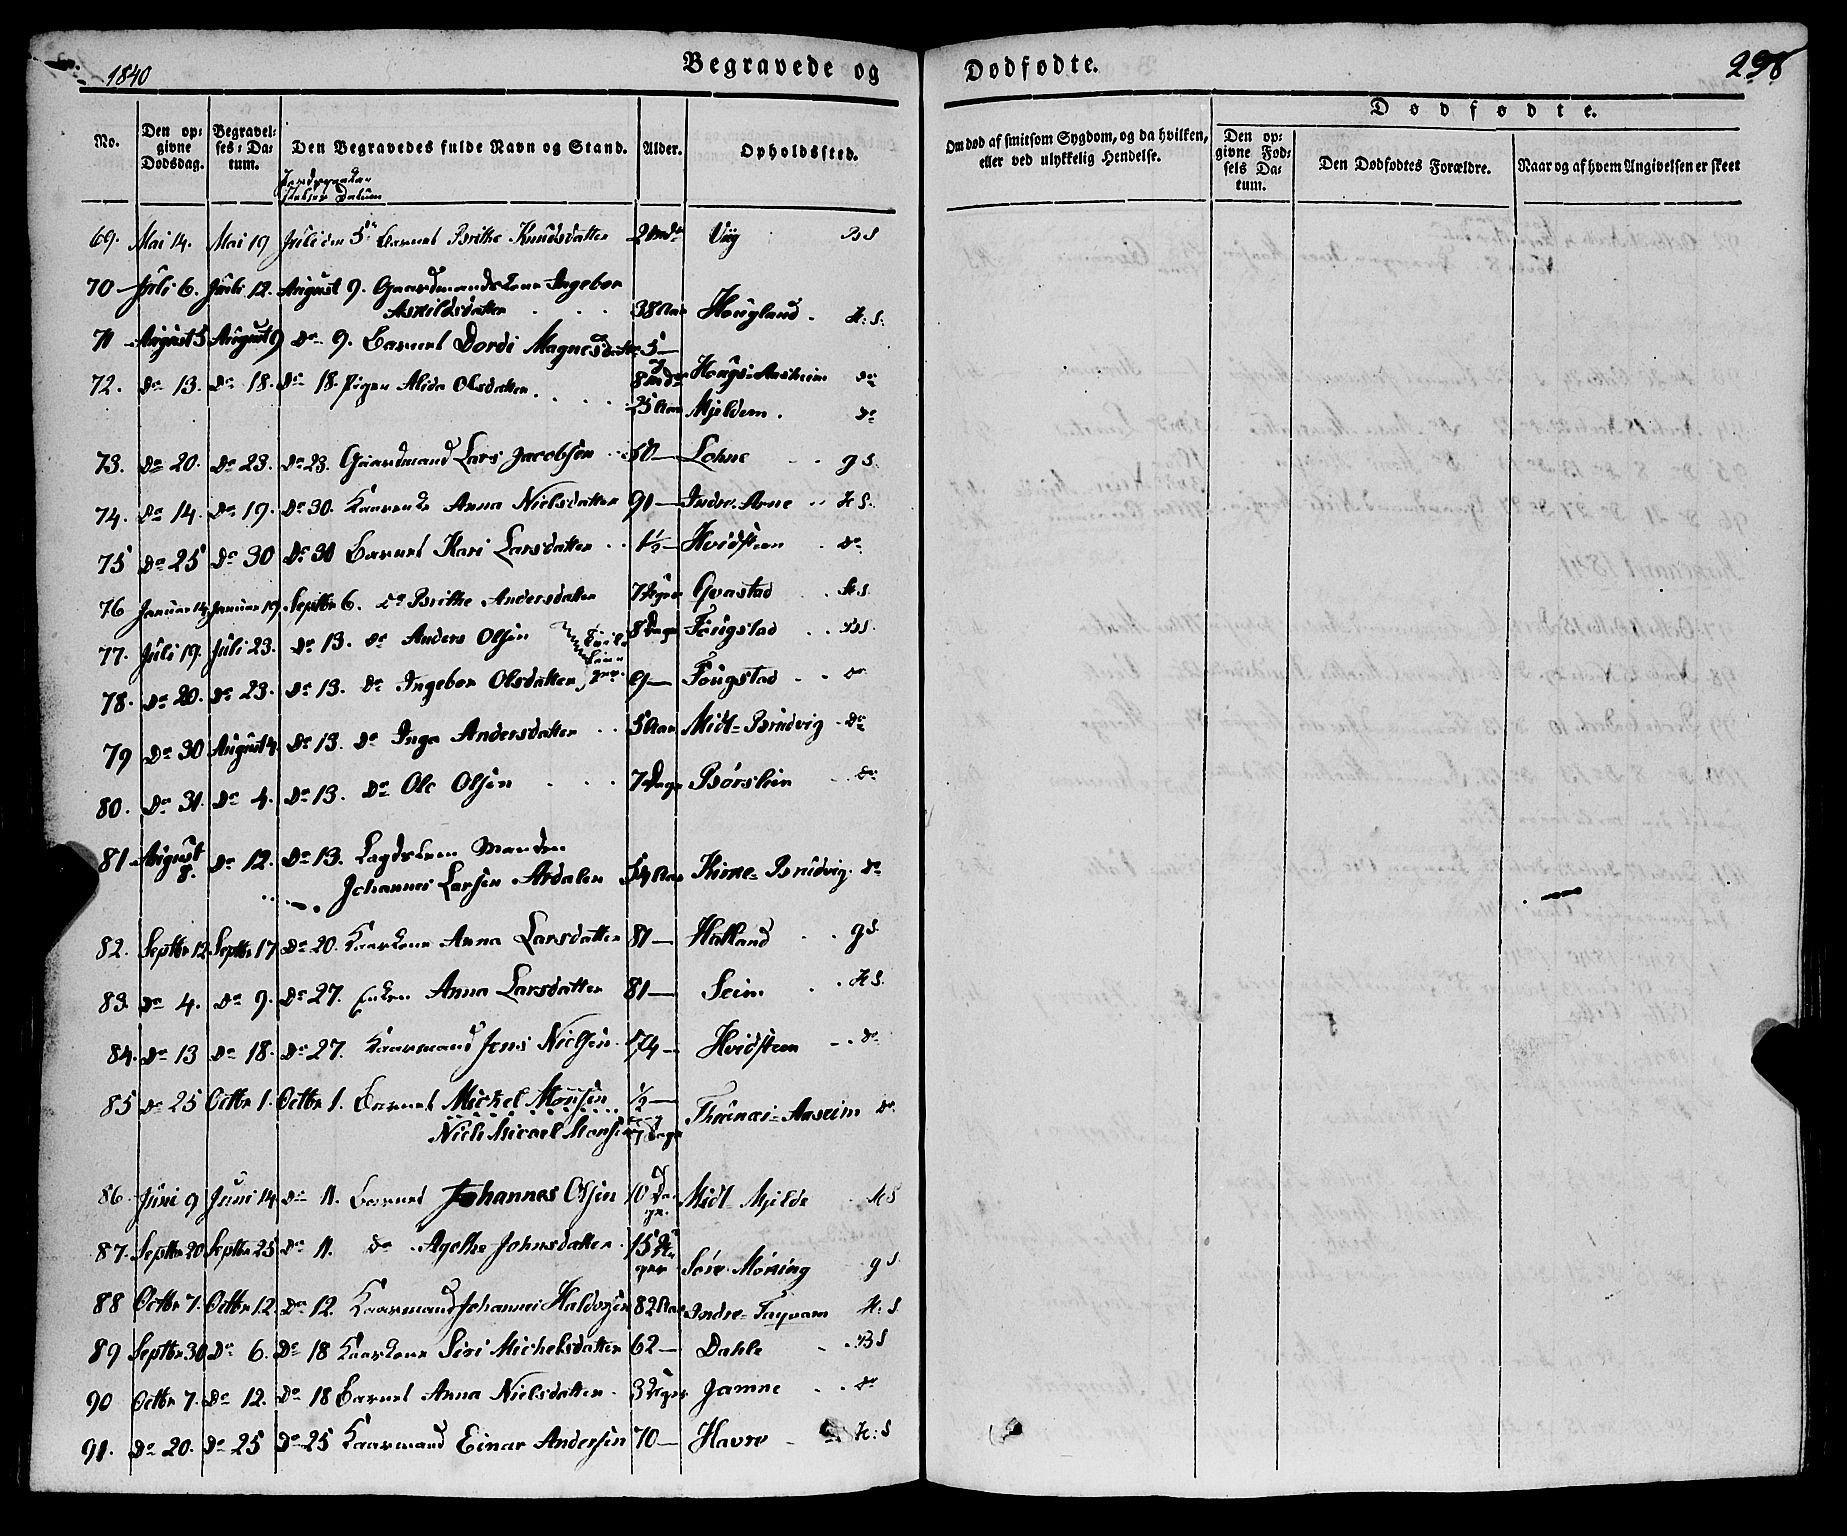 1840
Begravede og
Dødfødte.
298
No.
Den opgivne Dødsdag.
Begravelses-Datum.
Den Begravedes fulde Navn og Stand.
Alder.
Opholdssted.
Om død af smitsom Sygdom, og da hvilken, eller ved ulykkelig Hendelse.
Dødfødte.
Den opgivne Fødsels Datum.
Den Dødfødtes Forældre.
Naar og af hvem Angivelsen er skeet
Datum
69. Mai 14. Mai 19 Juli den 5te Barnet Brithe Knudsdatter 2 Md. BS
70 Juli 6. Juli 12. August 9. Gaardmandskone Ingebor
Askildsdatter 38 Aar Hougland H:S:
71 August 5 August 9 Do 9. Barnet Dordi Magnesdatter 5
72. Do 13. Do 18. Do 18. Pigen Alida Olsdatter 8 Md. Hougs-Aaseim Do
25 Aar Mjeldem Do
73. Do 20. Do 23. Do 23. Gaardmand Lars Jacobsen 50 — Lohne g S.
74. Do 14. Do 19. Do 30. Kaarenke Anna Nielsdatter 91 — Indre Arne H S.
75 Do 25 Do 30 Do 30 Barnet Kari Larsdatter 1½ — Hvidsteen Do
76 Januar 14 Januar 19 Septbr 6. Do Brithe Andersdatter 7 Uger Gvastad H S.
77. Juli 19. Juli 23. Do 13. Do Anders Olsen 8 Dage Fougstad BS.
78. Do 20. Do 23. Do 13. Do Ingebor Olsdatter 9 — Fougstad Do
79 Do 30 August 4. Do 13. Do Inga Andersdatter 5 Aar Midt-Brudvig Do
80. Do 31. Do 4. Do 13. Do Ole Olsen 7 Dage Børsleim Do
81 August 8. Do 12. Do 13. Lagdslem Manden
Johannes Larsen Ardalen 54 Aar Kirne-Brudvig Do
82. Septbr 12 Septbr 17 Do 20. Kaarkone Anna Larsdatter 81 — Hatland g S.
83. Do 4. Do 9. Do 27. Enken Anna Larsdatter 81 — Seim H S.
84. Do 13 Do 18. Do 27. Kaarmand Jens Nielsen 74 — Hvidsteen Do
85 Do 25 Octbr 1. Octbr 1. Barnet Mickel Monsen ½ —
Niels Micael Monsen 7 Dage Thrunes-Aaseim Do
86. Juni 9 Juni 14 Do 11. Barnet Johannes Olsen 10 Dage Midt-Mjelde H S
87. Septbr 20 Septbr 25 Do 11. Do Agethe Johnsdatter 15 Uger Søre Møning g S.
88 Octbr 7. Octbr 12. Do 12. Kaarmand Johannes Haldorsen 82 Aar Indre-Taqvam H: S.
89 Septbr 30 Do 6. Do 18 Kaarkone Siri Michelsdatter 62 — Dahle BS
90 Octbr 7. Do 12. Do 18 Barnet Anna Nielsdatter 3 Uger Jamne Do
91. Do 20. Do 25 Do 25 Kaarmand Einar Andersen 70 — Havre H: S